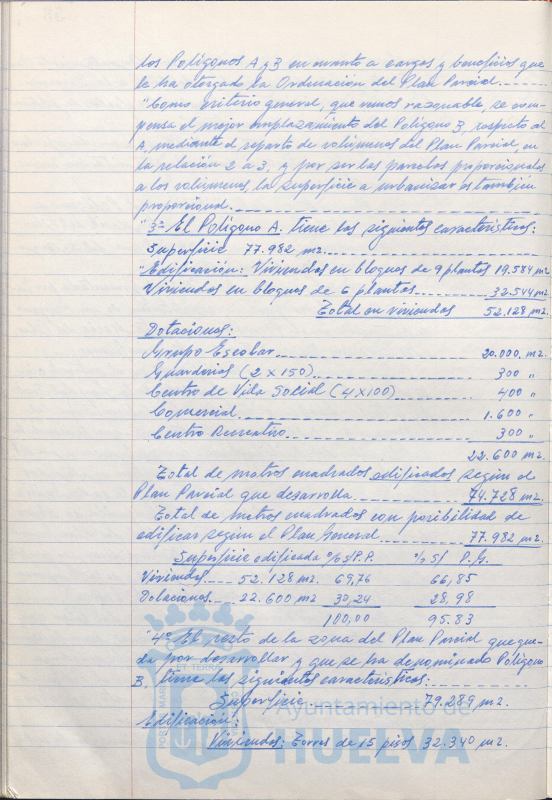 los Polígonos A y B en cuanto a cargas y beneficios que
le ha otorgado la Ordenación del Plan Parcial.
"Como criterio general, que vemos razonable, se com-
pensa el mejor emplazamiento del Polígono B, respecto al
A, mediante el reparto de volúmenes del Plan Parcial, en
la relación 2 a 3, y por ser las parcelas proporcionales
a los volúmenes, la superficie a urbanizar es también
proporcional.
"3º El Polígono A. tiene las siguientes características:
Superficie 77.982 m2.
"Edificación: Viviendas en bloques de 9 plantas 19.584 m2
Viviendas en bloques de 6 plantas 32.544 m2.
Total en viviendas 52.128 m2.
Dotaciones:
Grupo Escolar 20.000. m2.
Guarderías (2 x 150) 300 "
Centro de Vida Social (4x100) 400 "
Comercial 1.600 "
Centro Recreativo 300 "
22.600 m2.
Total de metros cuadrados edificados según el
Plan Parcial que desarrolla 74.728 m2.
Total de metros cuadrados con posibilidad de
edificar según el Plan General 77.982 m2.
Superficie edificada % S/P.P. % S/ P.G.
Viviendas 52.128 m2. 69,76 66,85
Dotaciones 22.600 m2 30,24 28,98
100,00 95.83
"4º El resto de la zona del Plan Parcial que que-
da por desarrollar y que se ha denominado Polígono
B, tiene las siguientes características:
Superficie 79.289 m2.
Edificación:
Viviendas: Torres de 15 pisos 32.340 m2.
Ayuntamiento de
HUELVA